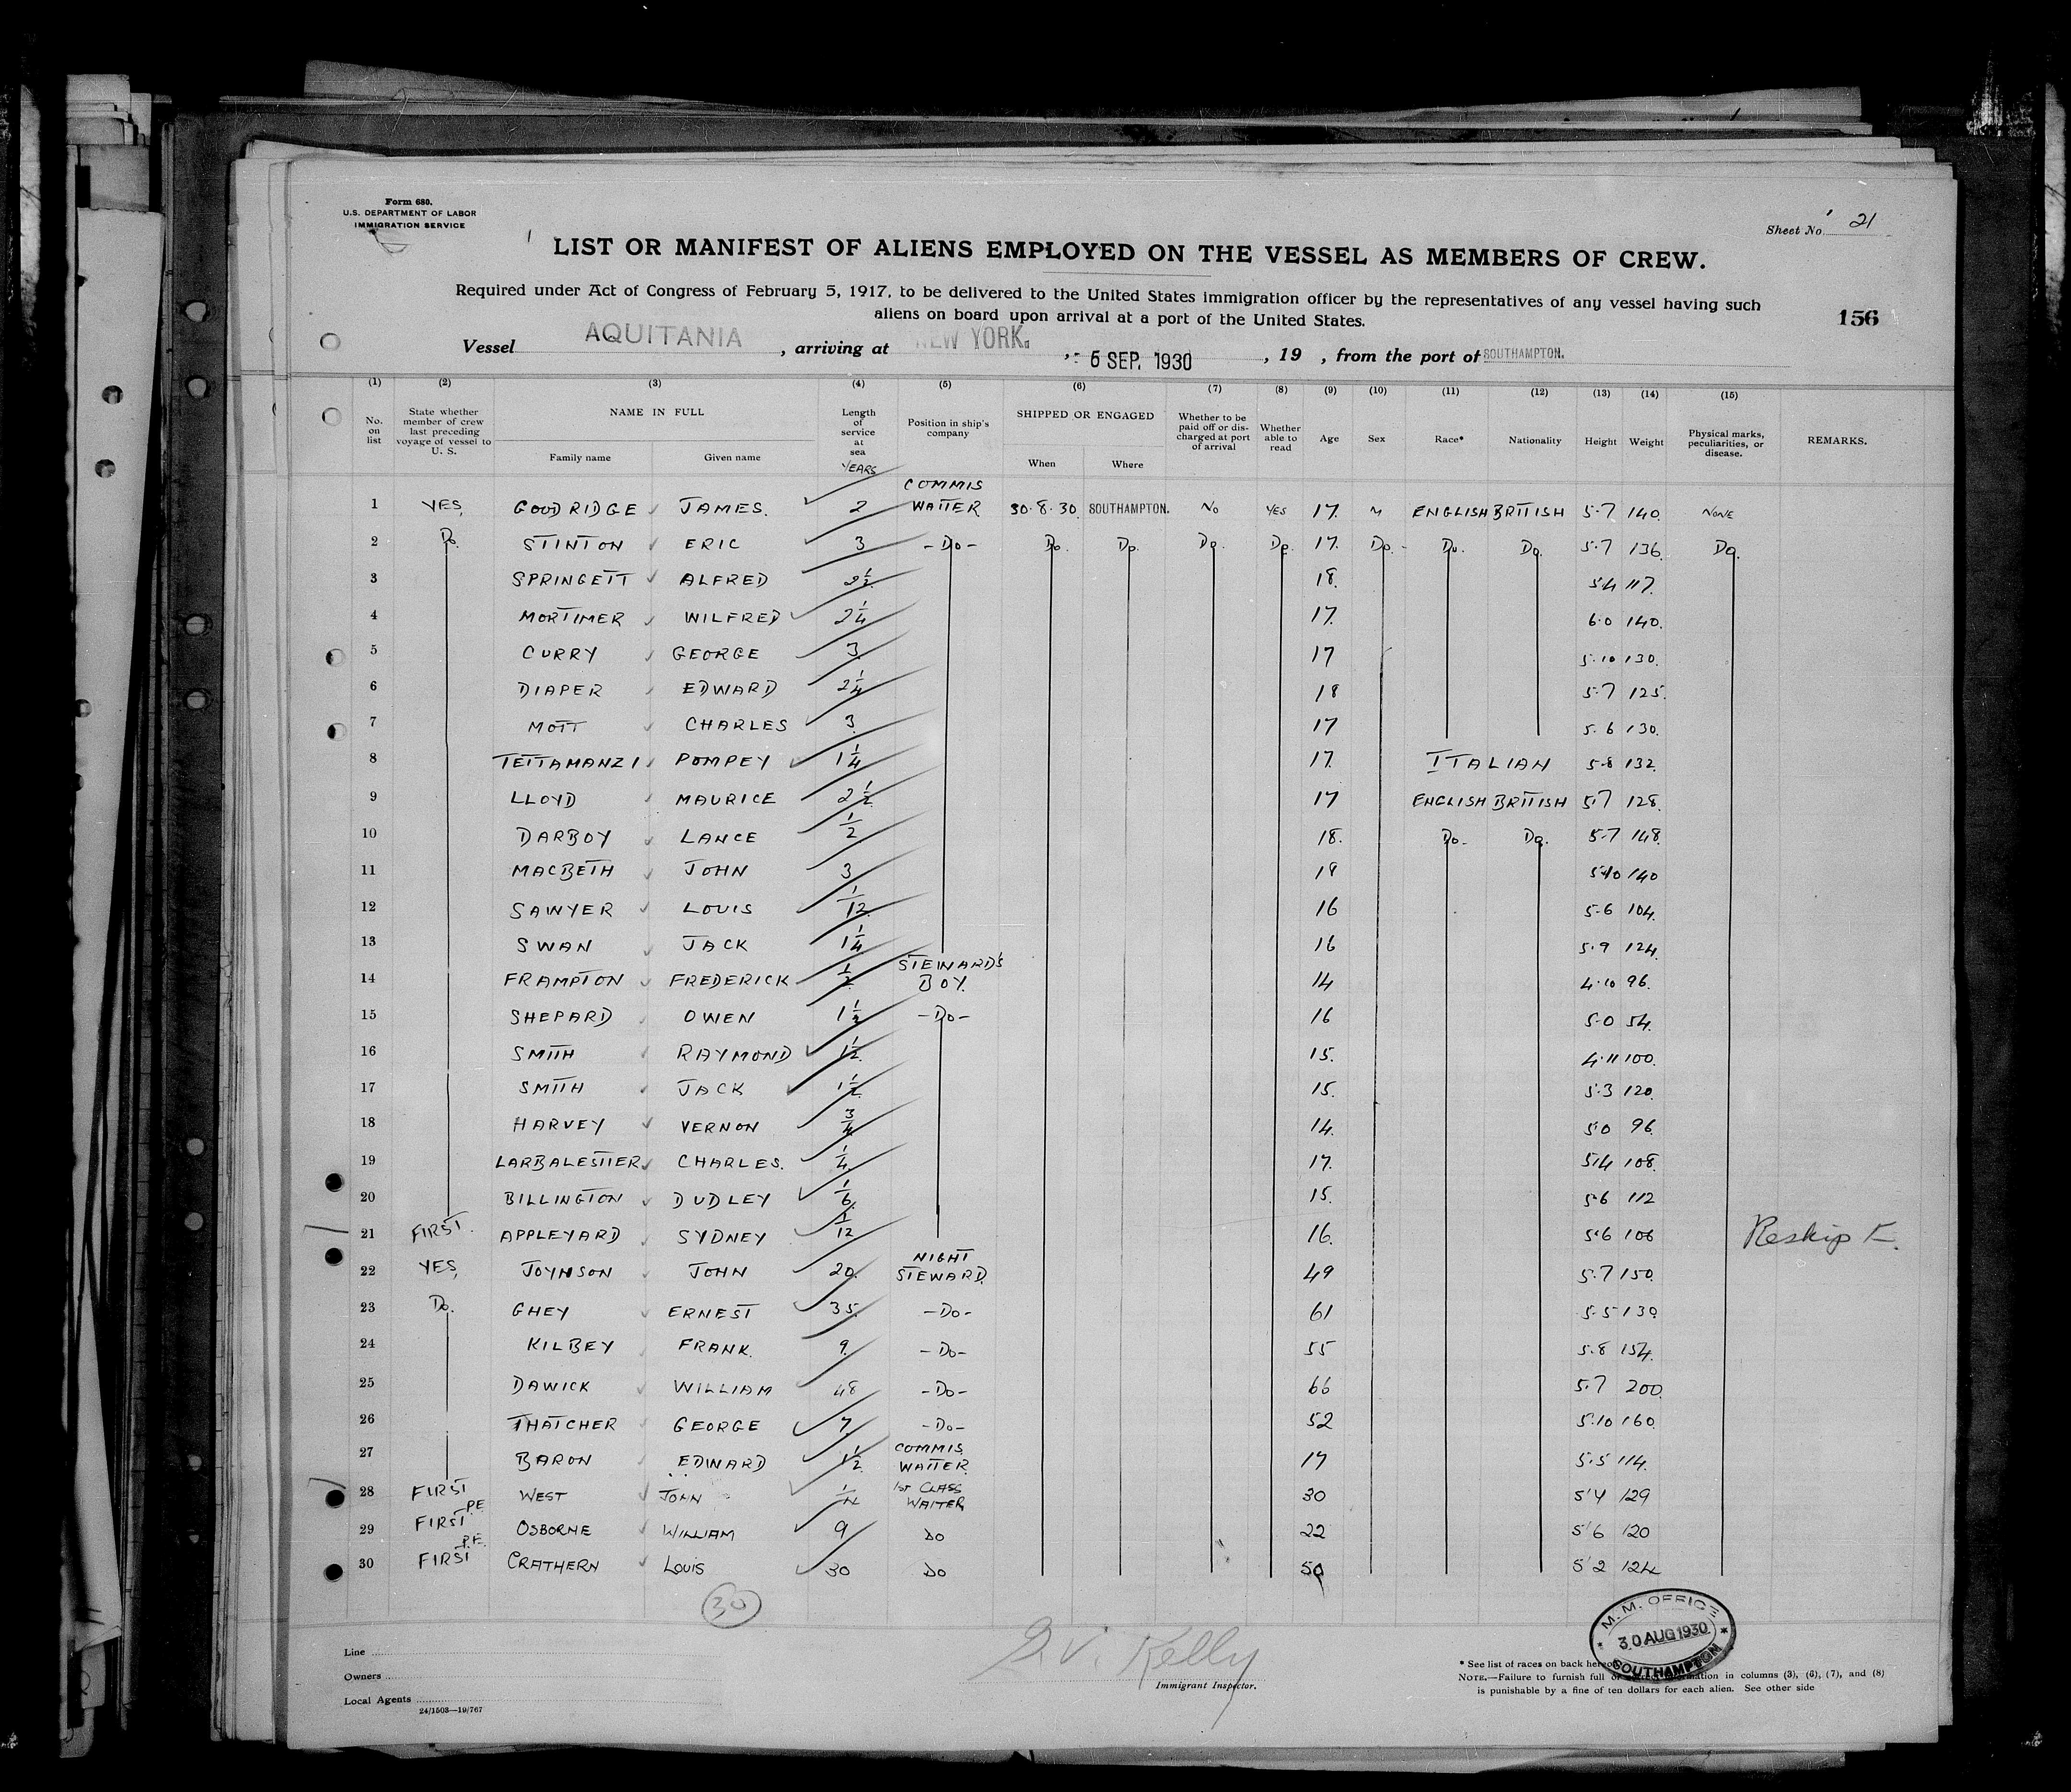 Form 680.
U.S. DEPARTMENT OF LABOR
IMMIGRATION SERVICE
Sheet No. 21
LIST OR MANIFEST OF ALIENS EMPLOYED ON THE VESSEL AS MEMBERS OF CREW.
Required under Act of Congress of February 5, 1917, to be delivered to the United States immigration officer by the representatives of any vessel having such
aliens on board upon arrival at a port of the United States.
156
Vessel AQUITANIA, arriving at NEW YORK., 5 SEP. 1930, 19 , from the port of SOUTHAMPTON.
(1) (2) (3) (4) (5) (6) (7) (8) (9) (10) (11) (12) (13) (14) (15)
No. on list State whether member of crew last preceding voyage of vessel to U. S. NAME IN FULL Family name Given name Length of service at sea YEARS Position in ship's company SHIPPED OR ENGAGED When Where Whether to be paid off or discharged at port of arrival Whether able to read Age Sex Race* Nationality Height Weight Physical marks, peculiarities, or disease. REMARKS.
1 YES, GOODRIDGE JAMES. 2 COMMIS WAITER 30.8.30 SOUTHAMPTON. NO YES 17. M ENGLISH BRITISH 5.7 140. NONE
2 Do. STINTON ERIC 3 -Do- Do. Do. Do. Do. 17. Do. Do. Do. 5.7 136. Do.
3 SPRINGETT ALFRED 2½ 18. 5.4 117.
4 MORTIMER WILFRED 2¼ 17. 6.0 140.
5 CURRY GEORGE 3 17 5.10 130.
6 DIAPER EDWARD 2¼ 18 5.7 125.
7 MOTT CHARLES 3 17 5.6 130.
8 TETTAMANZI POMPEY 1¼ 17. ITALIAN 5.8 132.
9 LLOYD MAURICE 2½ 17 ENGLISH BRITISH 5.7 128.
10 DARBOY LANCE ½ 18. Do. Do. 5.7 148.
11 MACBETH JOHN 3 18 5.10 140
12 SAWYER LOUIS 1/12 16 5.6 104.
13 SWAN JACK 1¼ 16 5.9 124.
14 FRAMPTON FREDERICK ½ STEWARD'S BOY. 14 4.10 96.
15 SHEPARD OWEN 1½ -Do- 16 5.0 54.
16 SMITH RAYMOND 1½ 15. 4.11 100.
17 SMITH JACK 1½ 15. 5.3 120.
18 HARVEY VERNON ¾ 14. 5.0 96.
19 LARBALESTIER CHARLES. ¼ 17. 5.4 108.
20 BILLINGTON DUDLEY 1/6 15. 5.6 112
21 FIRST. APPLEYARD SYDNEY 1/12 16. 5.6 106 Reship
22 YES, JOYNSON JOHN 20. NIGHT STEWARD. 49 5.7 150.
23 Do. GHEY ERNEST 35. -Do- 61 5.5 130.
24 KILBEY FRANK. 9. -Do- 55 5.8 154.
25 DAWICK WILLIAM 48 -Do- 66 5.7 200.
26 THATCHER GEORGE 7. -Do- 52 5.10 160.
27 BARON EDWARD 1½ COMMIS. WAITER. 17 5.5 114.
28 FIRST WEST JOHN 1st CLASS WAITER 30 5'4 129
29 FIRST P.E. OSBORNE WILLIAM 9 DO 22 5'6 120
30 FIRST P.E. CRATHERN LOUIS 30 DO 50 5'2 124
30
Line
Owners
Local Agents
24/1503—19/767
Kelly
Immigrant Inspector.
M. M. OFFICE
30 AUG 1930
SOUTHAMPTON
* See list of races on back hereof
NOTE.—Failure to furnish full or information in columns (3), (6), (7), and (8)
is punishable by a fine of ten dollars for each alien. See other side